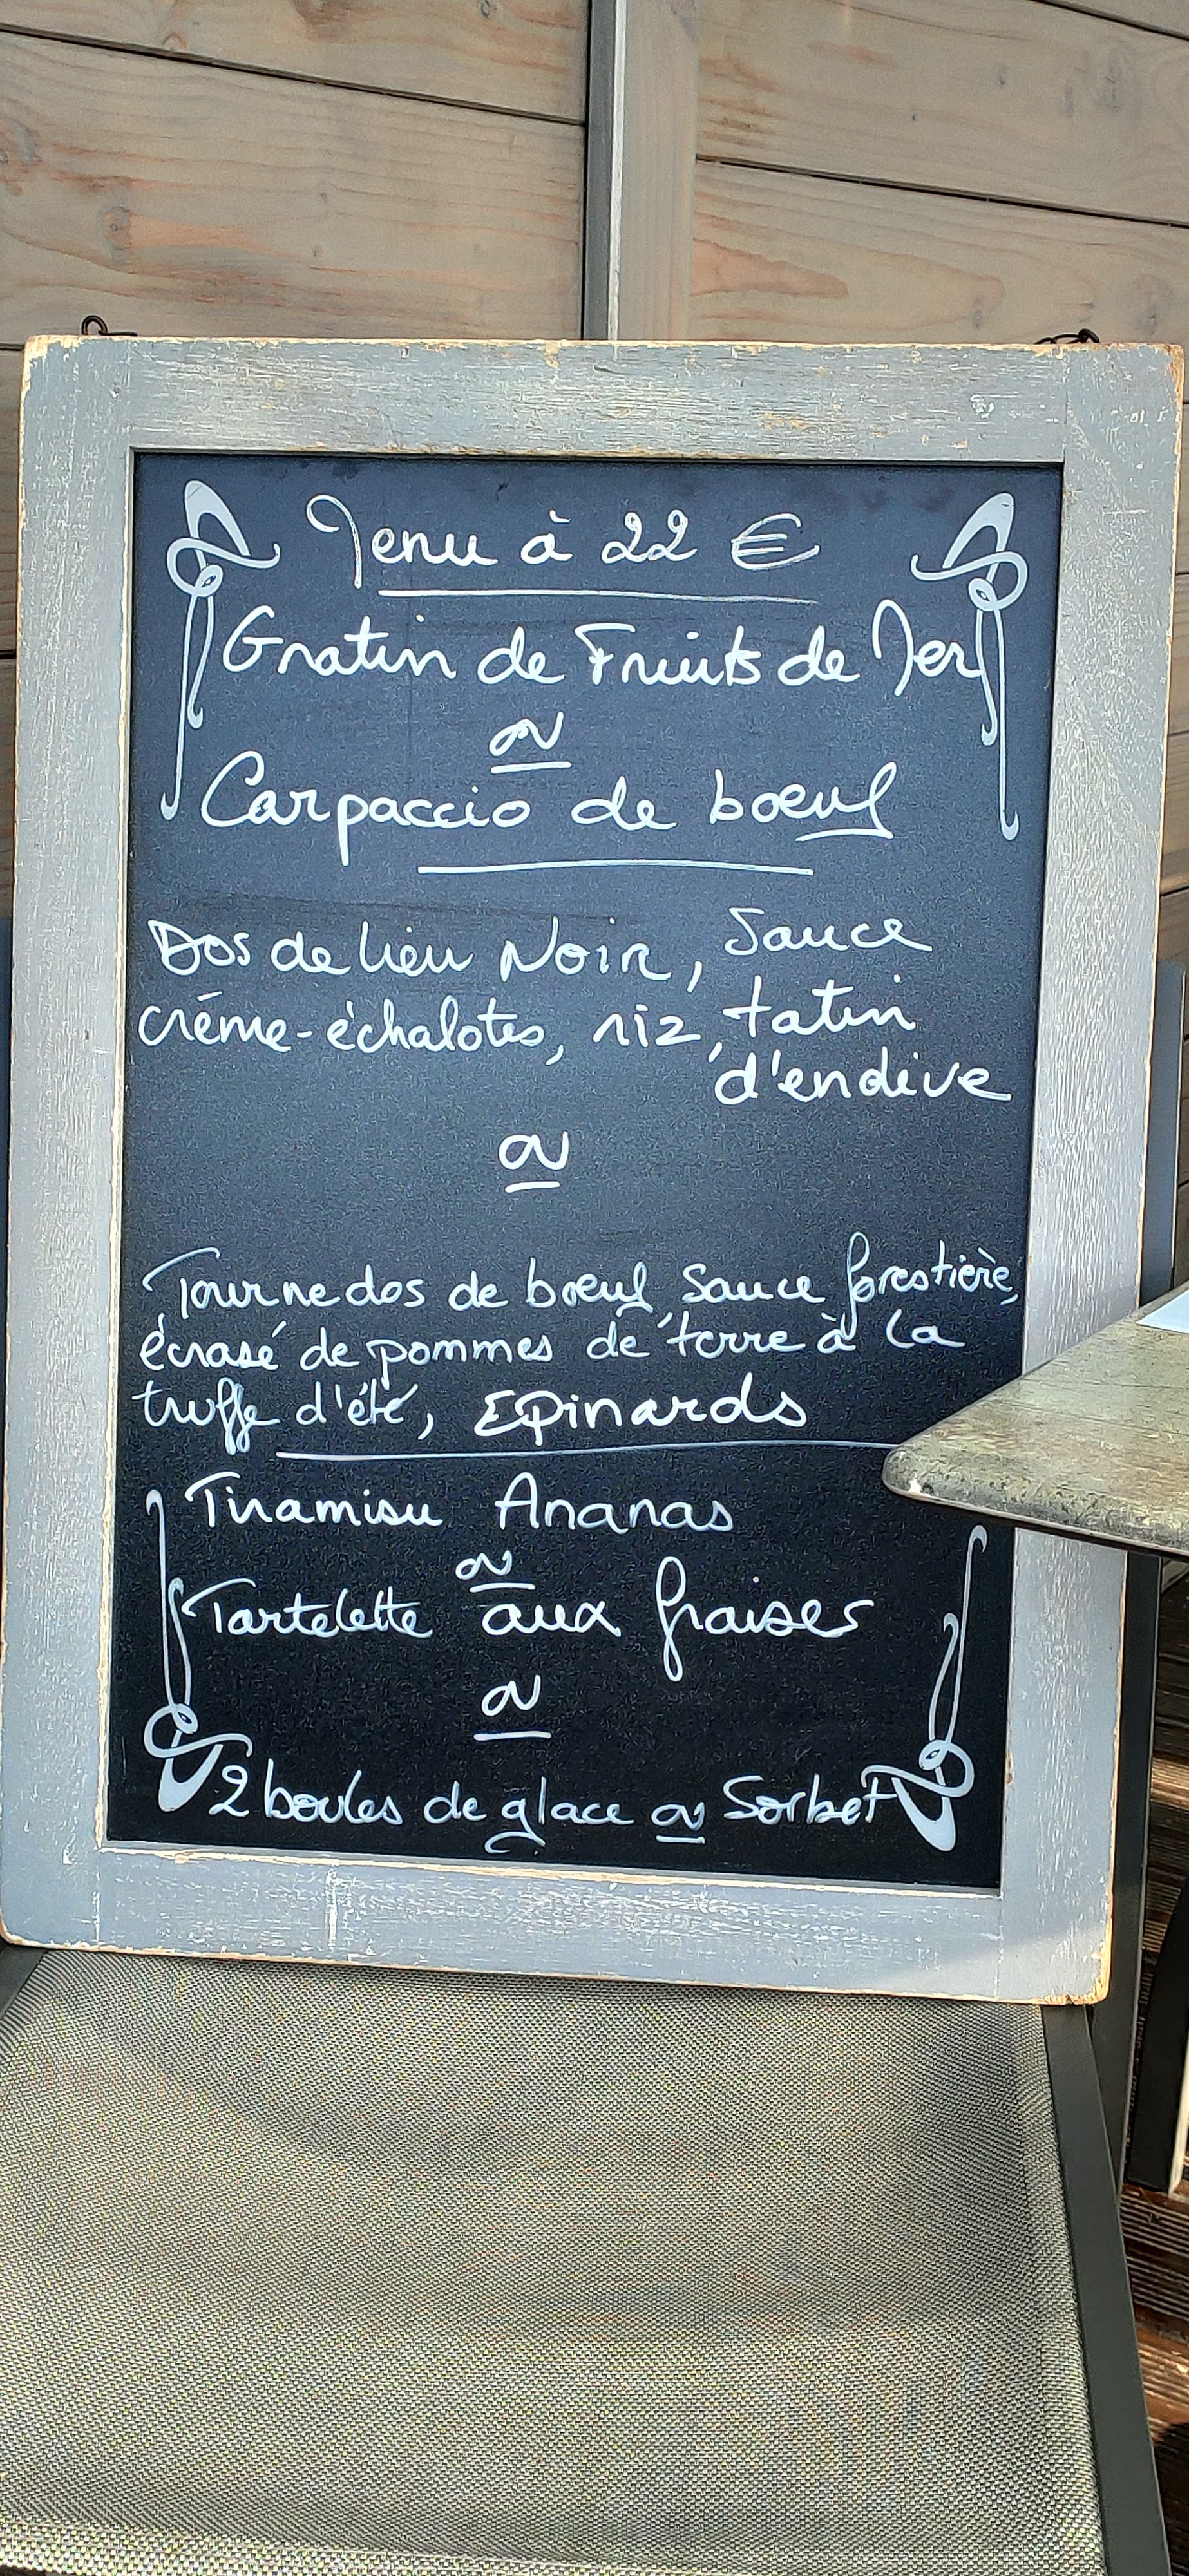 Menu à 22 €
Gratin de Fruits de Mer
ou
Carpaccio de boeuf
Dos de lieu Noir, Sauce
crème-échalotes, riz, tatin
d'endive
ou
Tournedos de boeuf, Sauce forestière,
écrasé de pommes de terre à la
truffe d'été, Epinards
Tiramisu Ananas
ou
Tartelette aux fraises
ou
2 boules de glace ou Sorbet